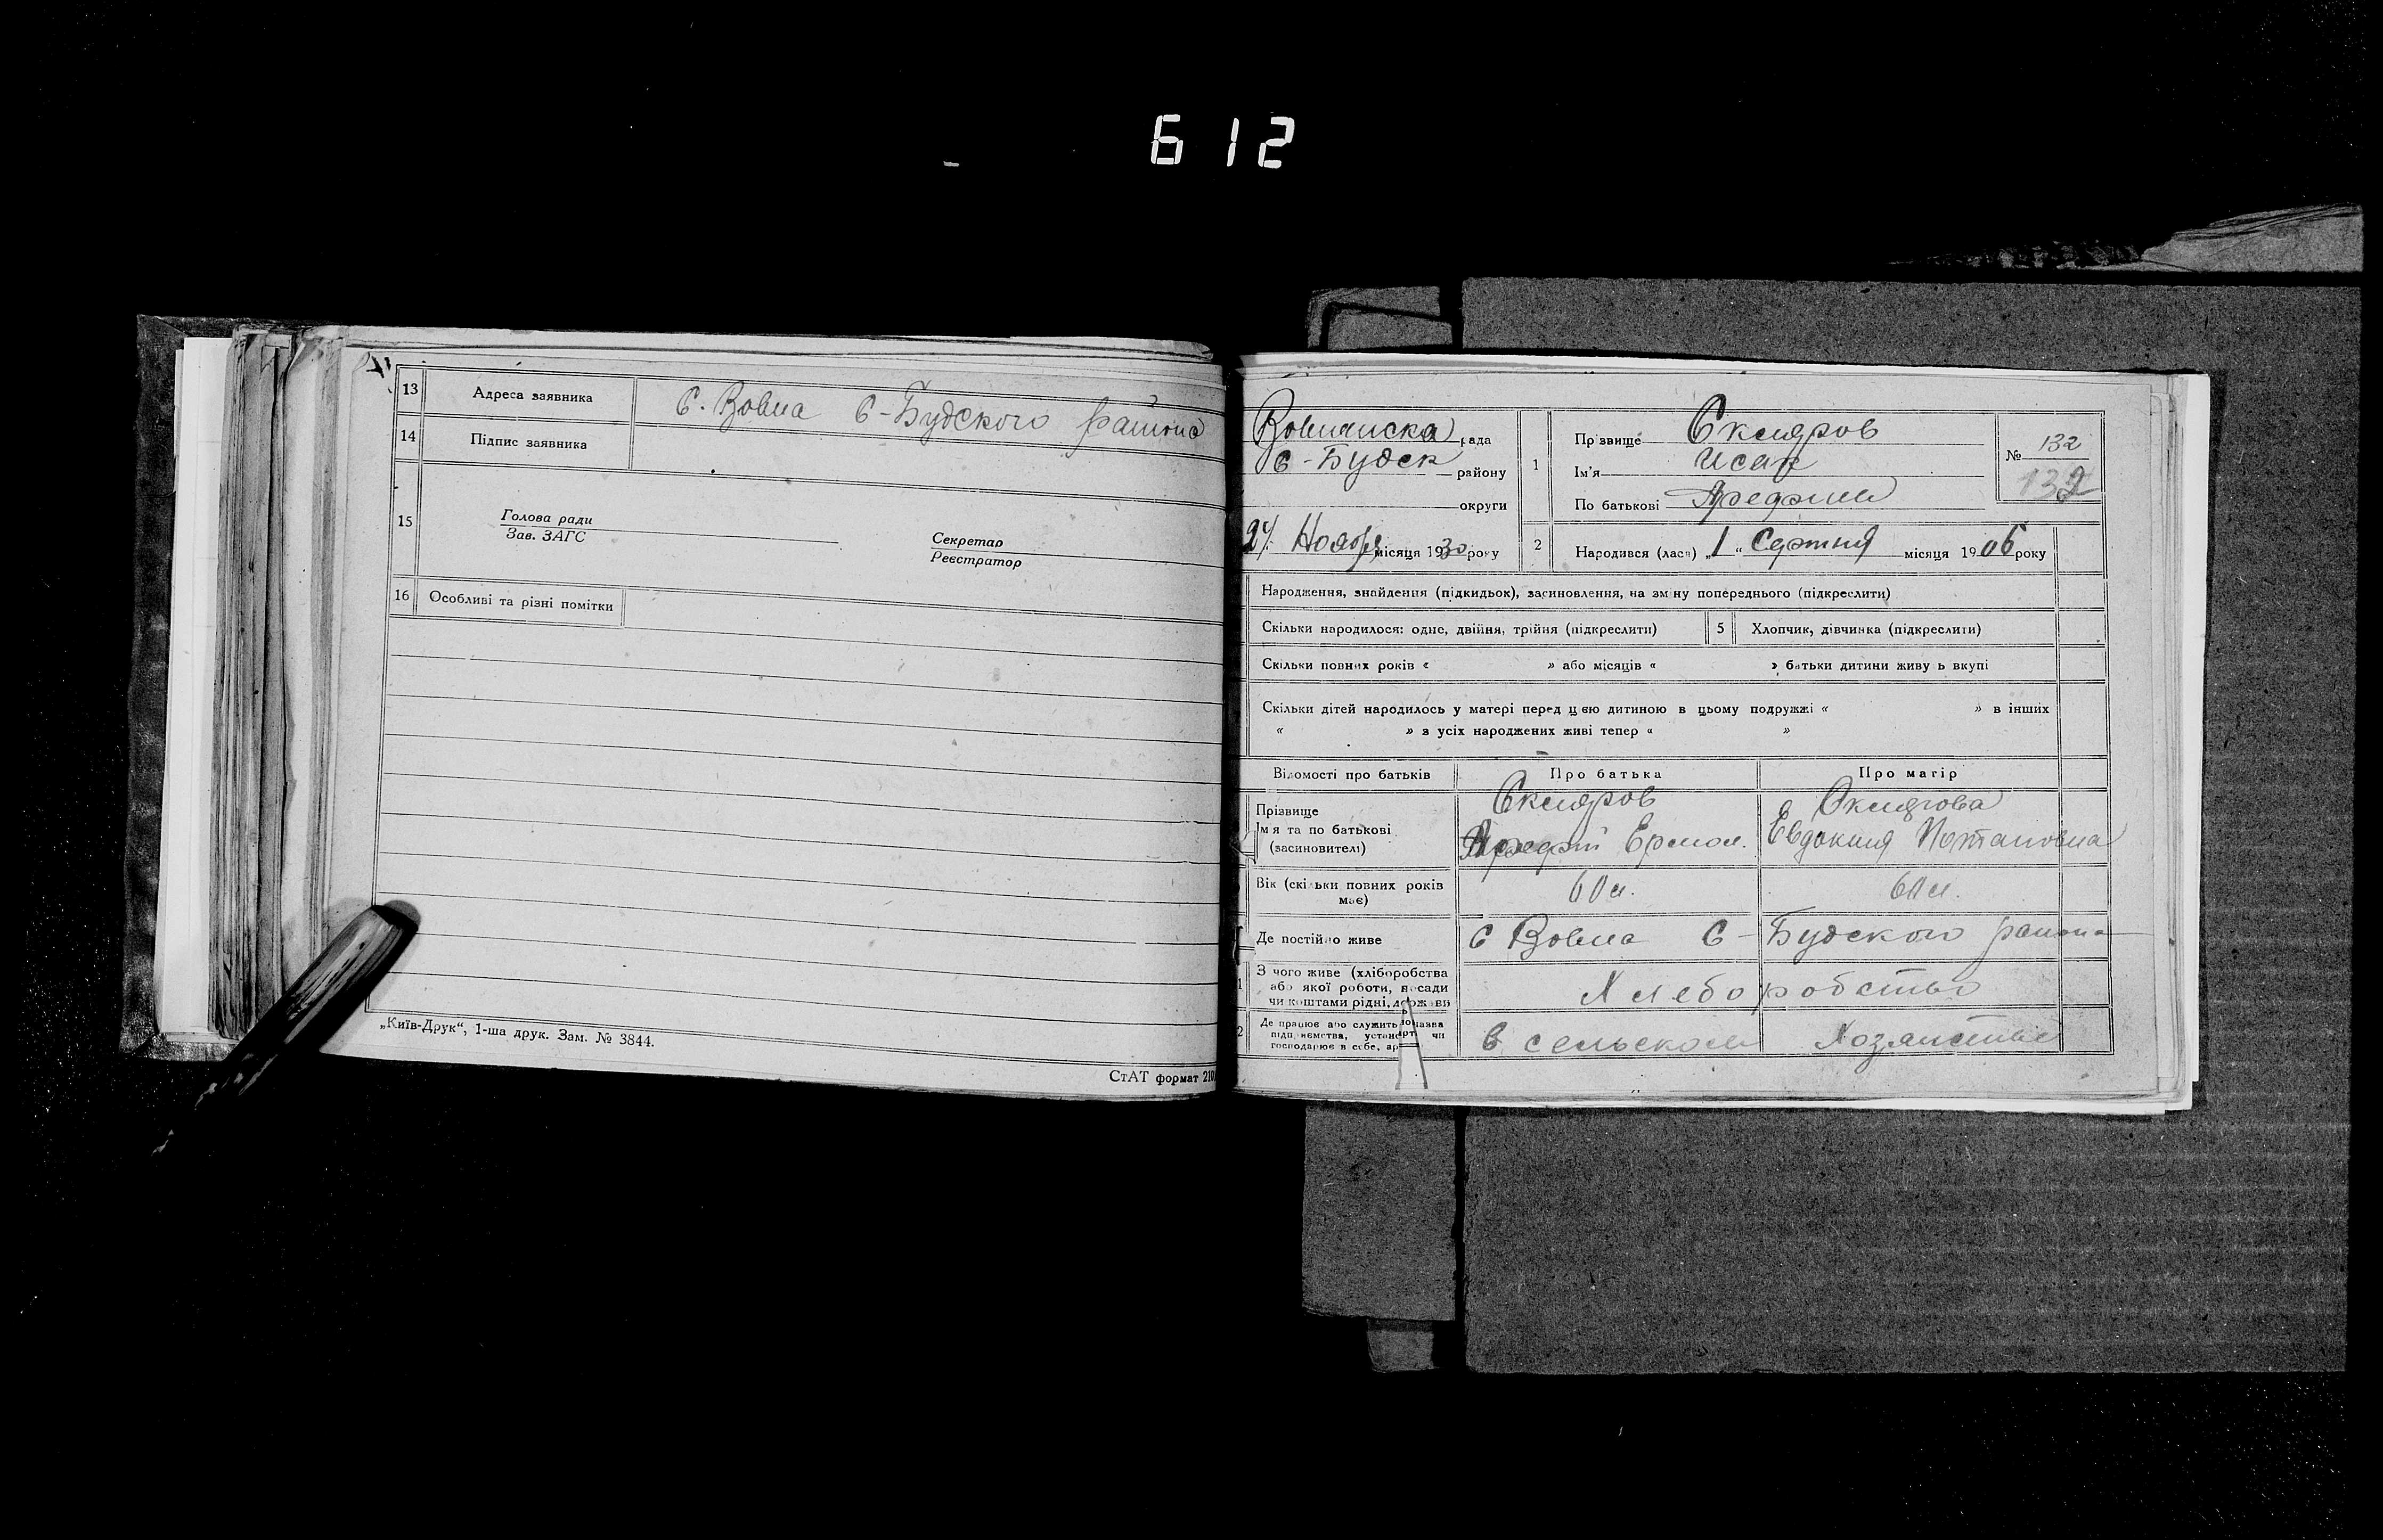 612
13 Адреса заявника С. Вовна С-Будского района
14 Підпис заявника
15 Голова ради
Зав. ЗАГС
Секретар
Реєстратор
16 Особливі та різні помітки
„Київ-Друк“, 1-ша друк. Зам. № 3844.
СтАТ формат 210
рада
С-Будск района
округи
24 Ноября місяця 1930 року
1 Прізвище
Ім'я Исак
По батькові
№ 132
132
2 Народився (лася) „1“ Серпня місяця 1906 року
Народження, знайдення (підкидьок), засиновлення, на зміну попереднього (підкреслити)
Скільки народилося: одне, двійня, трійня (підкреслити) 5 Хлопчик, дівчинка (підкреслити)
Скільки повних років « » або місяців « » батьки дитини живуть вкупі
Скільки дітей народилось у матері перед цією дитиною в цьому подружжі « » в інших
« » з усіх народжених живі тепер « »
Відомості про батьків Про батька Про матір
Прізвище
Ім'я та по батькові Ермол. Евдокия Потаповна
(засиновителі)
Вік (скільки повних років має) 60 л. 60 л.
Де постійно живе С Вовна С-Будского района
З чого живе (хліборобства
або якої роботи, посади
чи коштами рідні, держави Хлеборобство
Де працює або служить назва
підприємства, установи чи
господарює в себе, в сельском хозяистве